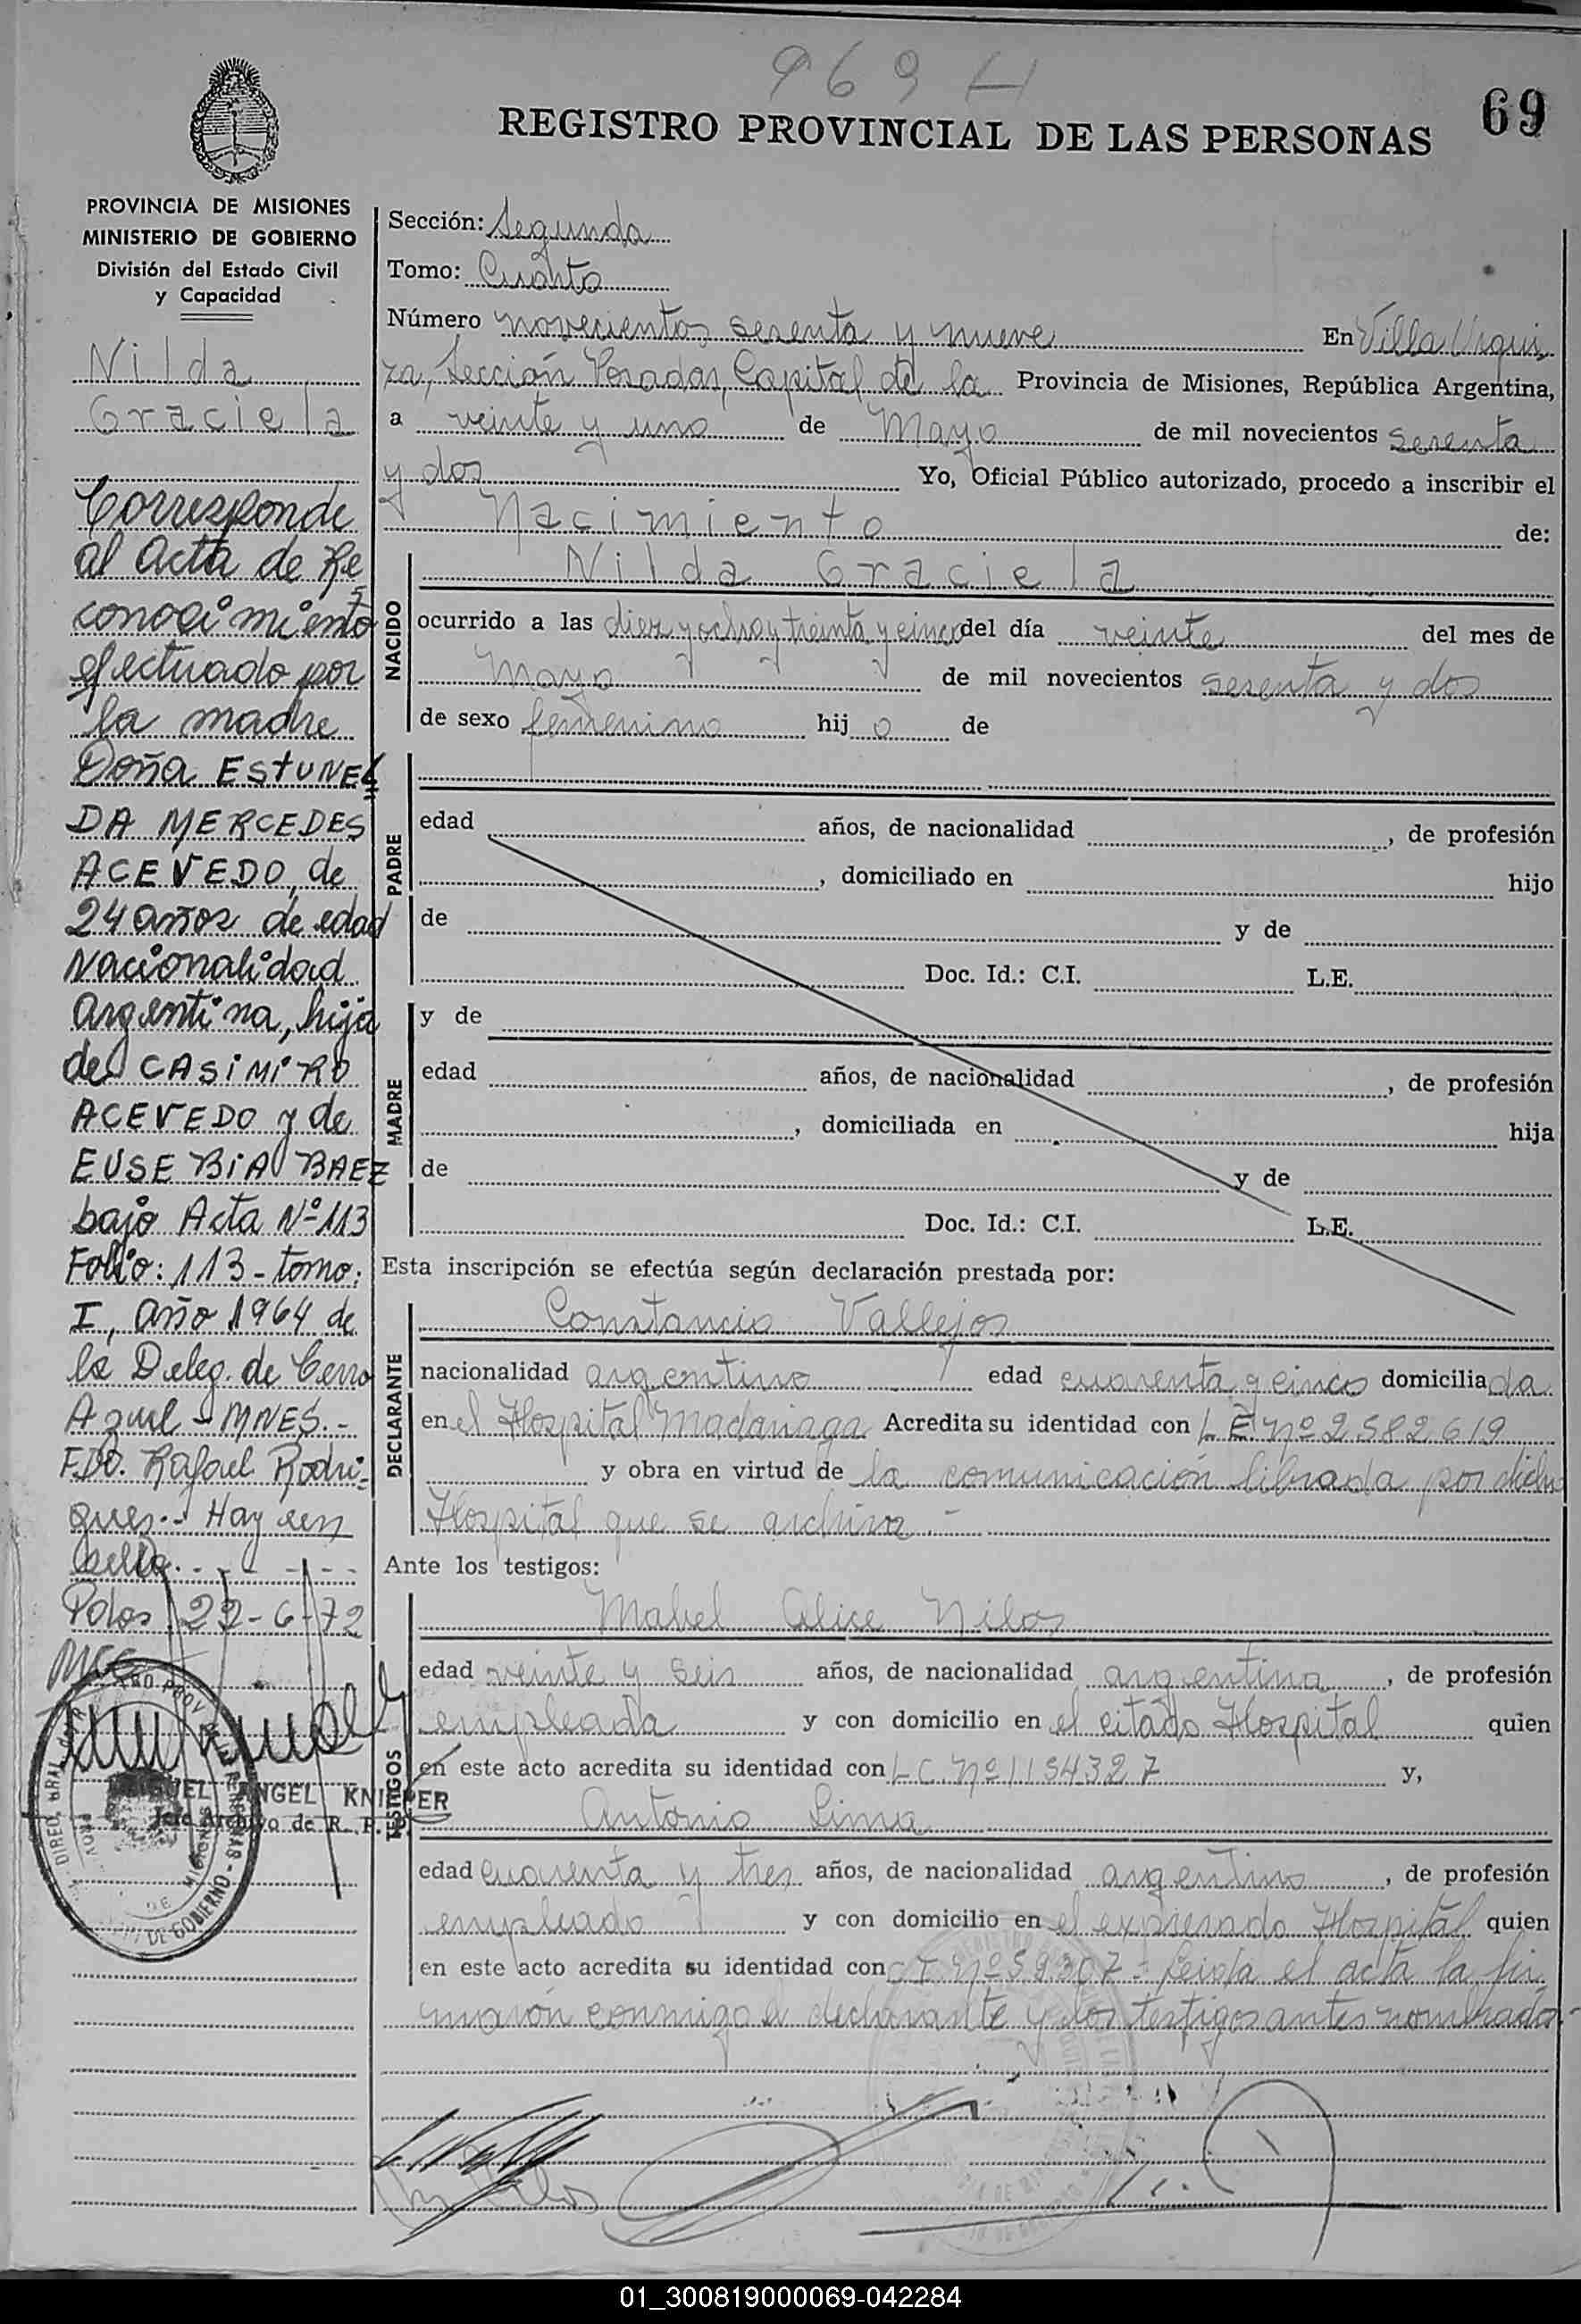 969 H
69
REGISTRO PROVINCIAL DE LAS PERSONAS
PROVINCIA DE MISIONES
MINISTERIO DE GOBIERNO
División del Estado Civil
y Capacidad
Nilda
Graciela
Corresponde
al Acta de Re
conocimiento
efectuado por
la madre
Doña ESTUNEL
DA MERCEDES
ACEVEDO, de
24 años de edad
Nacionalidad
Argentina, hija
de CASIMIRO
ACEVEDO y de
EUSEBIA BAEZ
bajo Acta Nº 113
Folio: 113 - tomo:
I, año 1964 de
la Deleg. de Cerro
Azul - MNES.-
FDO. Rafael Rodri-
guez.- Hay un
sello.- - - - -
Pdas 22-6-72
MIGUEL ANGEL KNIPPER
Jefe Archivo de R. P.
Sección: Segunda
Tomo: Cuarto
Número novecientos sesenta y nueve En Villa Urqui
za, Sección Posadas, Capital de la Provincia de Misiones, República Argentina,
a veinte y uno de Mayo de mil novecientos sesenta
y dos Yo, Oficial Público autorizado, procedo a inscribir el
Nacimiento de:
NACIDO
Nilda Graciela
ocurrido a las diez y ocho y treinta y cinco del día veinte del mes de
Mayo de mil novecientos sesenta y dos
de sexo femenino hij o de
PADRE
edad años, de nacionalidad , de profesión
, domiciliado en hijo
de y de
Doc. Id.: C.I. L.E.
MADRE
y de
edad años, de nacionalidad , de profesión
, domiciliada en hija
de y de
Doc. Id.: C.I. L.E.
Esta inscripción se efectúa según declaración prestada por:
DECLARANTE
Constancio Vallejos
nacionalidad argentino edad cuarenta y cinco domiciliada
en el Hospital Madariaga Acredita su identidad con L E. nº 2582619
y obra en virtud de la comunicación librada por dicho
Hospital que se archiva.-
Ante los testigos:
TESTIGOS
Mabel Alice Nilos
edad veinte y seis años, de nacionalidad argentina, de profesión
empleada y con domicilio en el citado Hospital quien
en este acto acredita su identidad con L C. nº 1154327 y,
Antonio Lima
edad cuarenta y tres años, de nacionalidad argentino, de profesión
empleado y con domicilio en el expresado Hospital quien
en este acto acredita su identidad con C I. nº 59307.- Leida el acta la fir
maron conmigo el declarante y los testigos antes nombrados.-
01_300819000069-042284